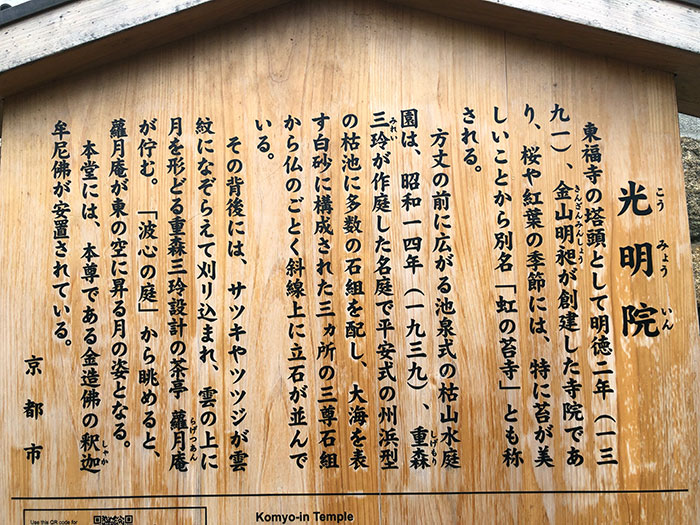 光明院
こうみょういん
東福寺の塔頭として明徳二年（一三
九一）、金山明昶が創建した寺院であ
きんざんみんしょう
り、桜や紅葉の季節には、特に苔が美
しいことから別名「虹の苔寺」とも称
される。
方丈の前に広がる池泉式の枯山水庭
園は、昭和一四年（一九三九）、重森
しげもり
三玲が作庭した名庭で平安式の州浜型
みれい
の枯池に多数の石組を配し、大海を表
す白砂に構成された三ヵ所の三尊石組
から仏のごとく斜線上に立石が並んで
いる。
その背後には、サツキやツツジが雲
紋になぞらえて刈り込まれ、雲の上に
月を形どる重森三玲設計の茶亭 蘿月庵
らげつあん
が佇む。「波心の庭」から眺めると、
蘿月庵が東の空に昇る月の姿となる。
本堂には、本尊である金造佛の釈迦
しゃか
牟尼佛が安置されている。
京都市
Komyo-in Temple
Use this QR code for